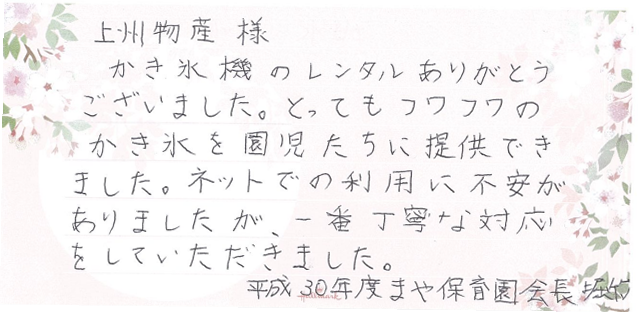 上州物産 様
かき氷機のレンタルありがとう
ございました。とってもフワフワの
かき氷を園児たちに提供でき
ました。ネットでの利用に不安が
ありましたが、一番丁寧な対応
をしていただきました。
平成30年度まや保育園会長 堀
Hallmark